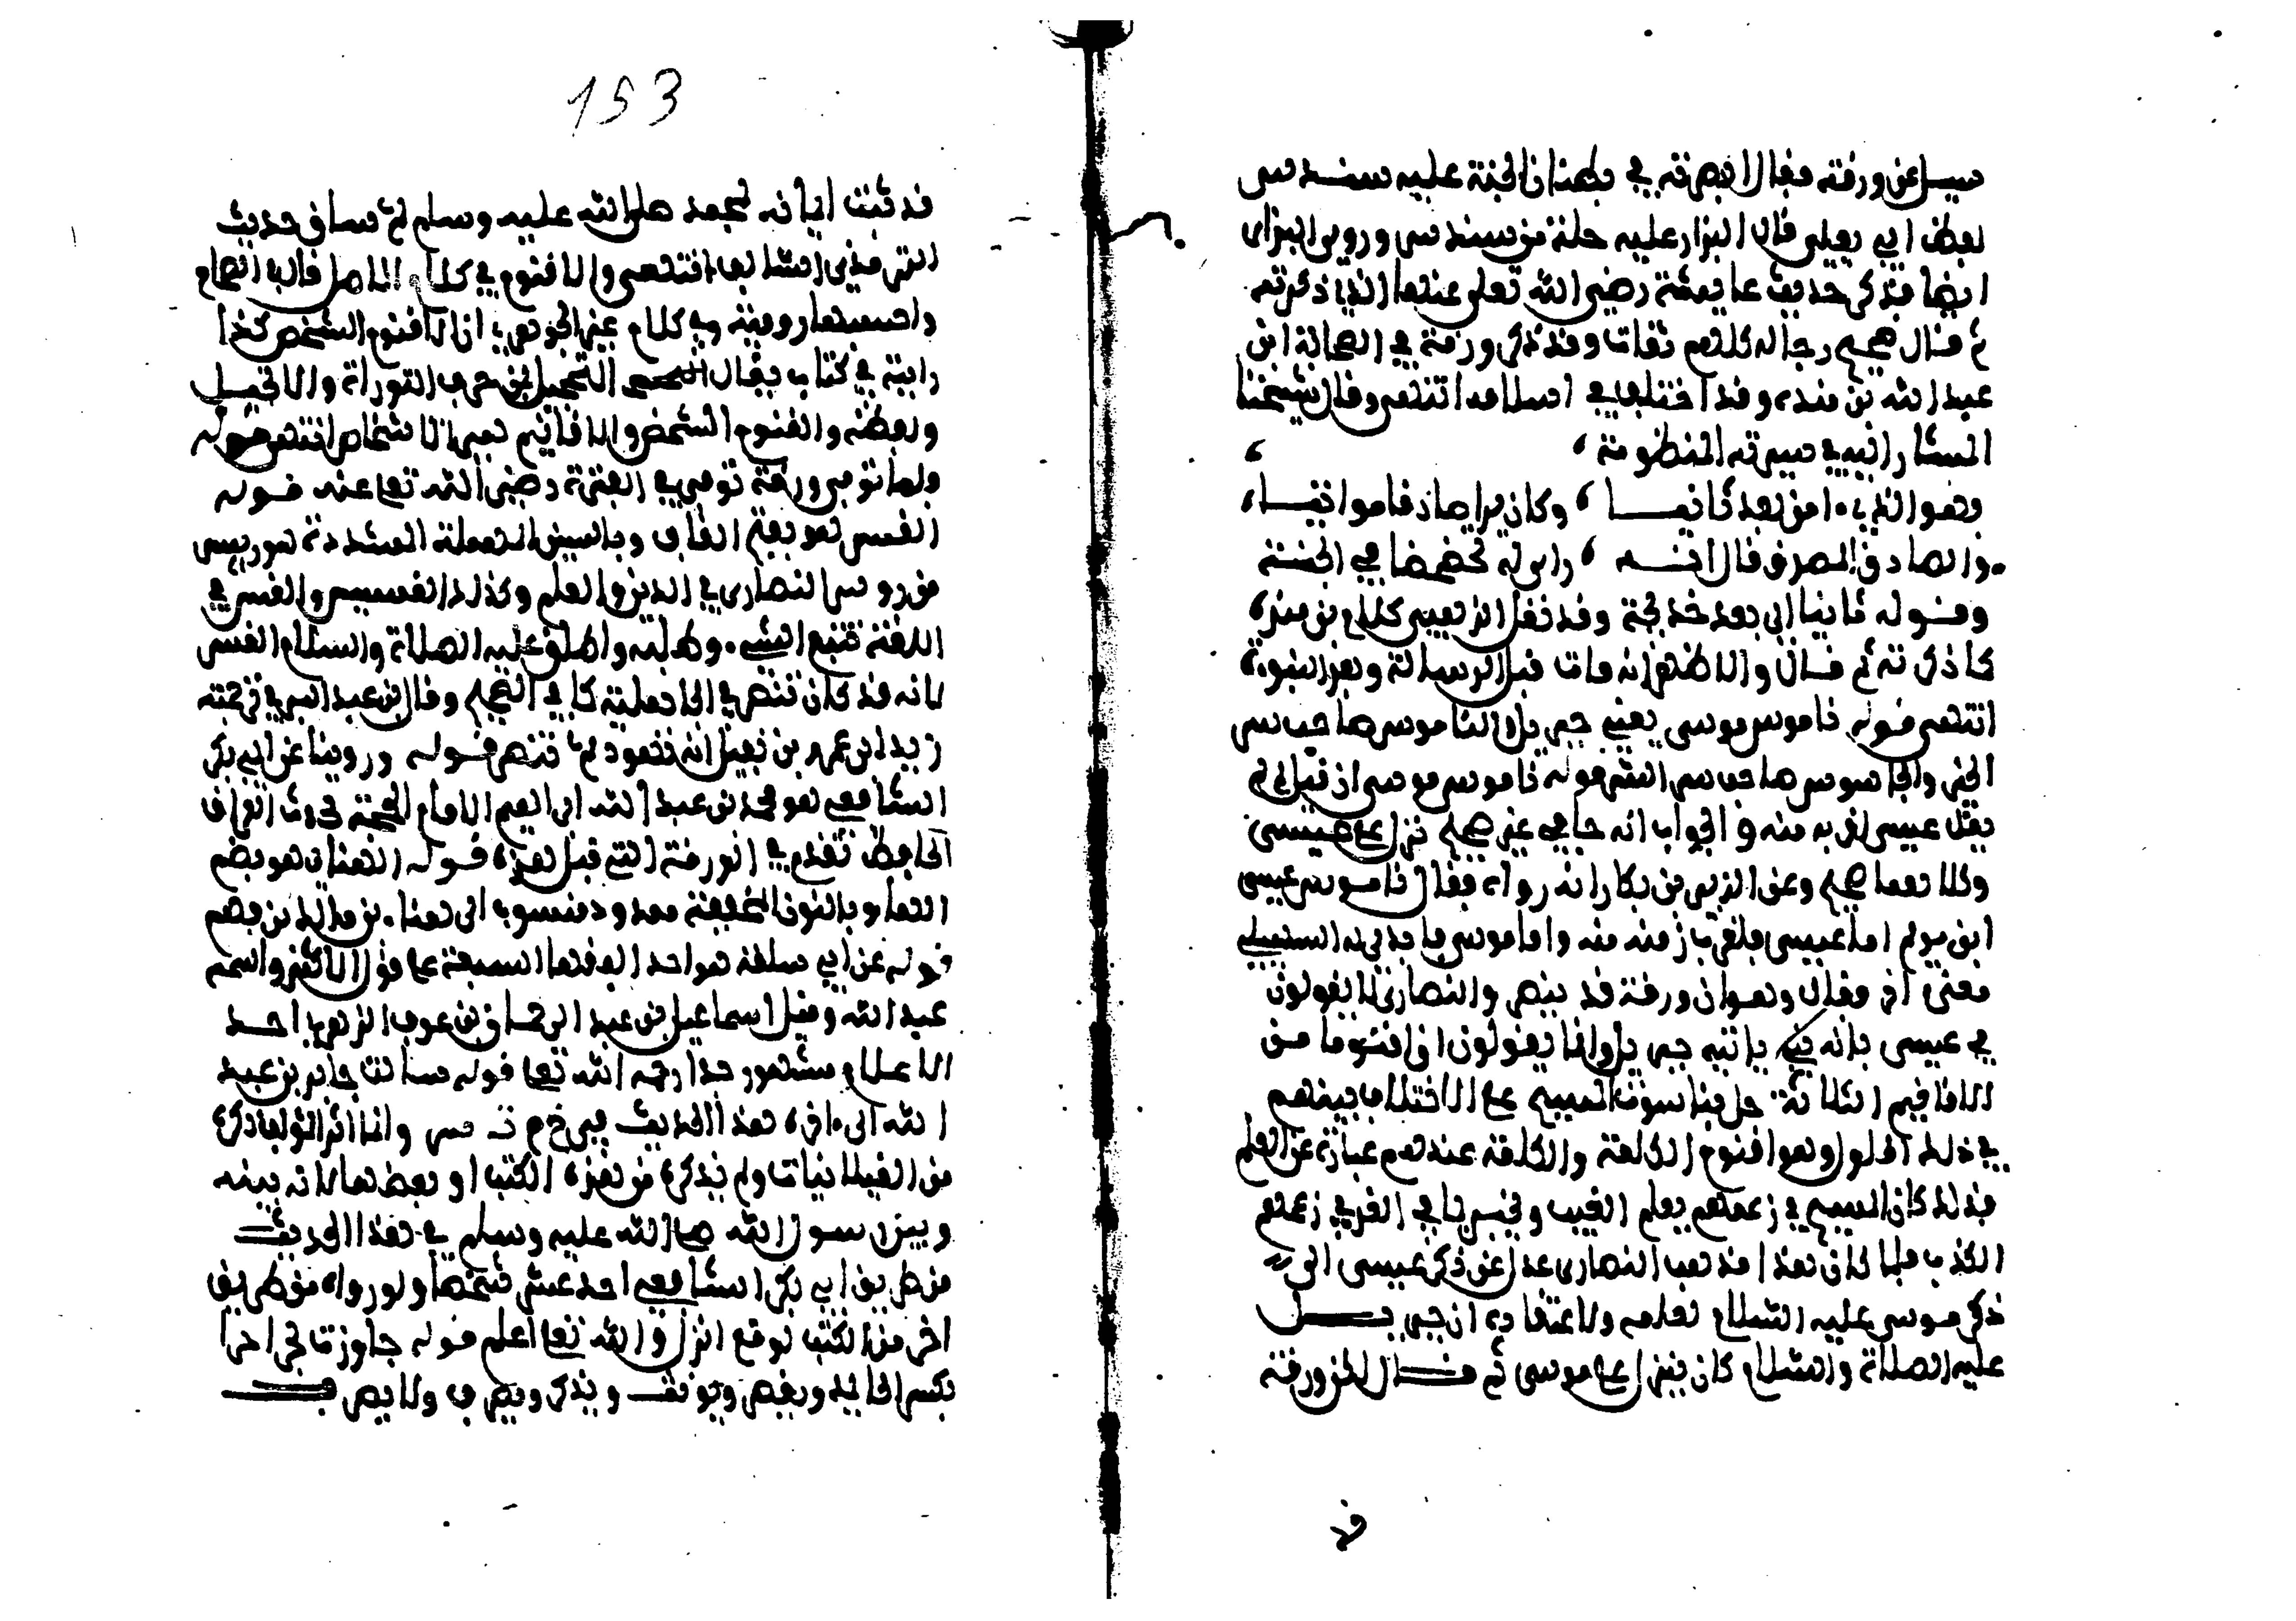 سيل عن ورقة فقال ابصرته في بطنان الجنة عليه سندس
لفظ ابي يعلى قال البزار عليه حلة من سندس وروى البزار
ايضا فذكر حديث عايشة رضي الله تعلى عنها الذي ذكرته
ثم قال صحيح رجاله كلهم ثقات وقد ذكر ورقة في الصحابة ابن
عبد الله بن مندة وقد اختلف في اسلامه انتهى وقال شيخنا
المشار اليه في سيرته المنظومة ،
وهو الذي ءامن بعد ثانيا ، وكان برا صادقا مواتيا ،
والصادق المصدوق قال انه ، راى له تخضخضا في الجنة
وقوله ثانيا اي بعد خديجة وقد نقل الذهبي كلام بن مندة
كما ذكرته ثم قال والاظهر انه مات قبل الرسالة وبعد النبوة
انتهى قوله ناموس موسى يعني جبريل الناموس صاحب سر
الخير والجاسوس صاحب سر الشر قوله ناموس موسى ان قيل لم لم
يقل عيسى لقربه منه و الجواب انه جا في غير الصحيح نزل على عيسى
وكلاهما صحيح وعن الزبير بن بكار انه رواه فقال ناموس عيسى
ابن مريم اما عيسى فلقرب زمنه منه واما موسى فابدى له السهيلي
معنى اخر فقال وهو ان ورقة قد تنصر والنصارى لا يقولون
في عيسى بانه نبي ياتيه جبريل وانما يقولون ان اقنوما من
الاقانيم الثلاثة حل بناسوت المسيح على الاختلاف بينهم
في ذلك الحلول وهو اقنوم الكلمة والكلمة عندهم عبارة عن العلم
فلذلك كان المسيح في زعمهم يعلم الغيب ويخبر بما في الغد في زعمهم
الكذب فلما كان هذا مذهب النصارى عدل عن ذكر عيسى الى
ذكر موسى عليه السلام لعلمه ولاعتقاده ان جبريل
عليه الصلاة والسلام كان ينزل على موسى ثم قال لكن ورقة
قد
153
قد ثبت ايمانه بمحمد صلى الله عليه وسلم ثم ساق حديث
الترمذي السالف انتهى والاقنوم في كلام الماصل قال في الصحاح
واحسبها رومية وفي كلام غير الجوهري ان الاقنوم الشخص كذا
رايته في كتاب يقال له التخجيل لمن حرف التوراة والانجيل
ولفظه والقنوم الشخص والاقانيم يعني الاشخاص انتهى قوله
ولما توفي ورقة توفي في الفترة رضي الله تعا عنه قوله
القس هو بفتح القاف وبالسين المهملة المشددة هو رييس
من روس النصارى في الدين والعلم وكذلك القسيس والقس في
اللغة تتبع الشيء وطلبه واطلق عليه الصلاة والسلام القس
لانه قد كان تنصر في الجاهلية كما في الصحيح وقال بن عبد البر في ترجمة
زيد ابن عمرو بن نفيل انه تهود ثم تنصر قوله وروينا عن ابي بكر
الشافعي هو محمد بن عبد الله ابن ابراهيم الامام الحجة محدث العراق
الحافظ تقدم في الورقة التي قبل هذه قوله الهنائي هو بضم
الهاء وبالنون الخفيفة ممدود منسوب الى هناءة بن مالك بن فهم
قوله عن ابي سلمة هو احد الفقهاء السبعة على قول الاكثر واسمه
عبد الله وقيل اسماعيل بن عبد الرحمان بن عوف الزهري احد
الاعلام مشهور جدا رحمه الله تعا قوله سالت جابر بن عبد
الله الى ءاخره هذا الحديث في خ م ت س وانما اثر المؤلف ذكره
من الغيلانيات ولم يذكره من هذه الكتب او بعضها لانه بينه
وبين رسول الله صلى الله عليه وسلم في هذا الحديث
من طريق ابي بكر الشافعي احد عشر شخصا ولو رواه من طريق
اخر من الكتب لوقع انزل والله تعا اعلم قوله جاورت بحراء حرا
بكسر الحاء يمد ويقصر ويونث ويذكر ويصرف ولا يصرف